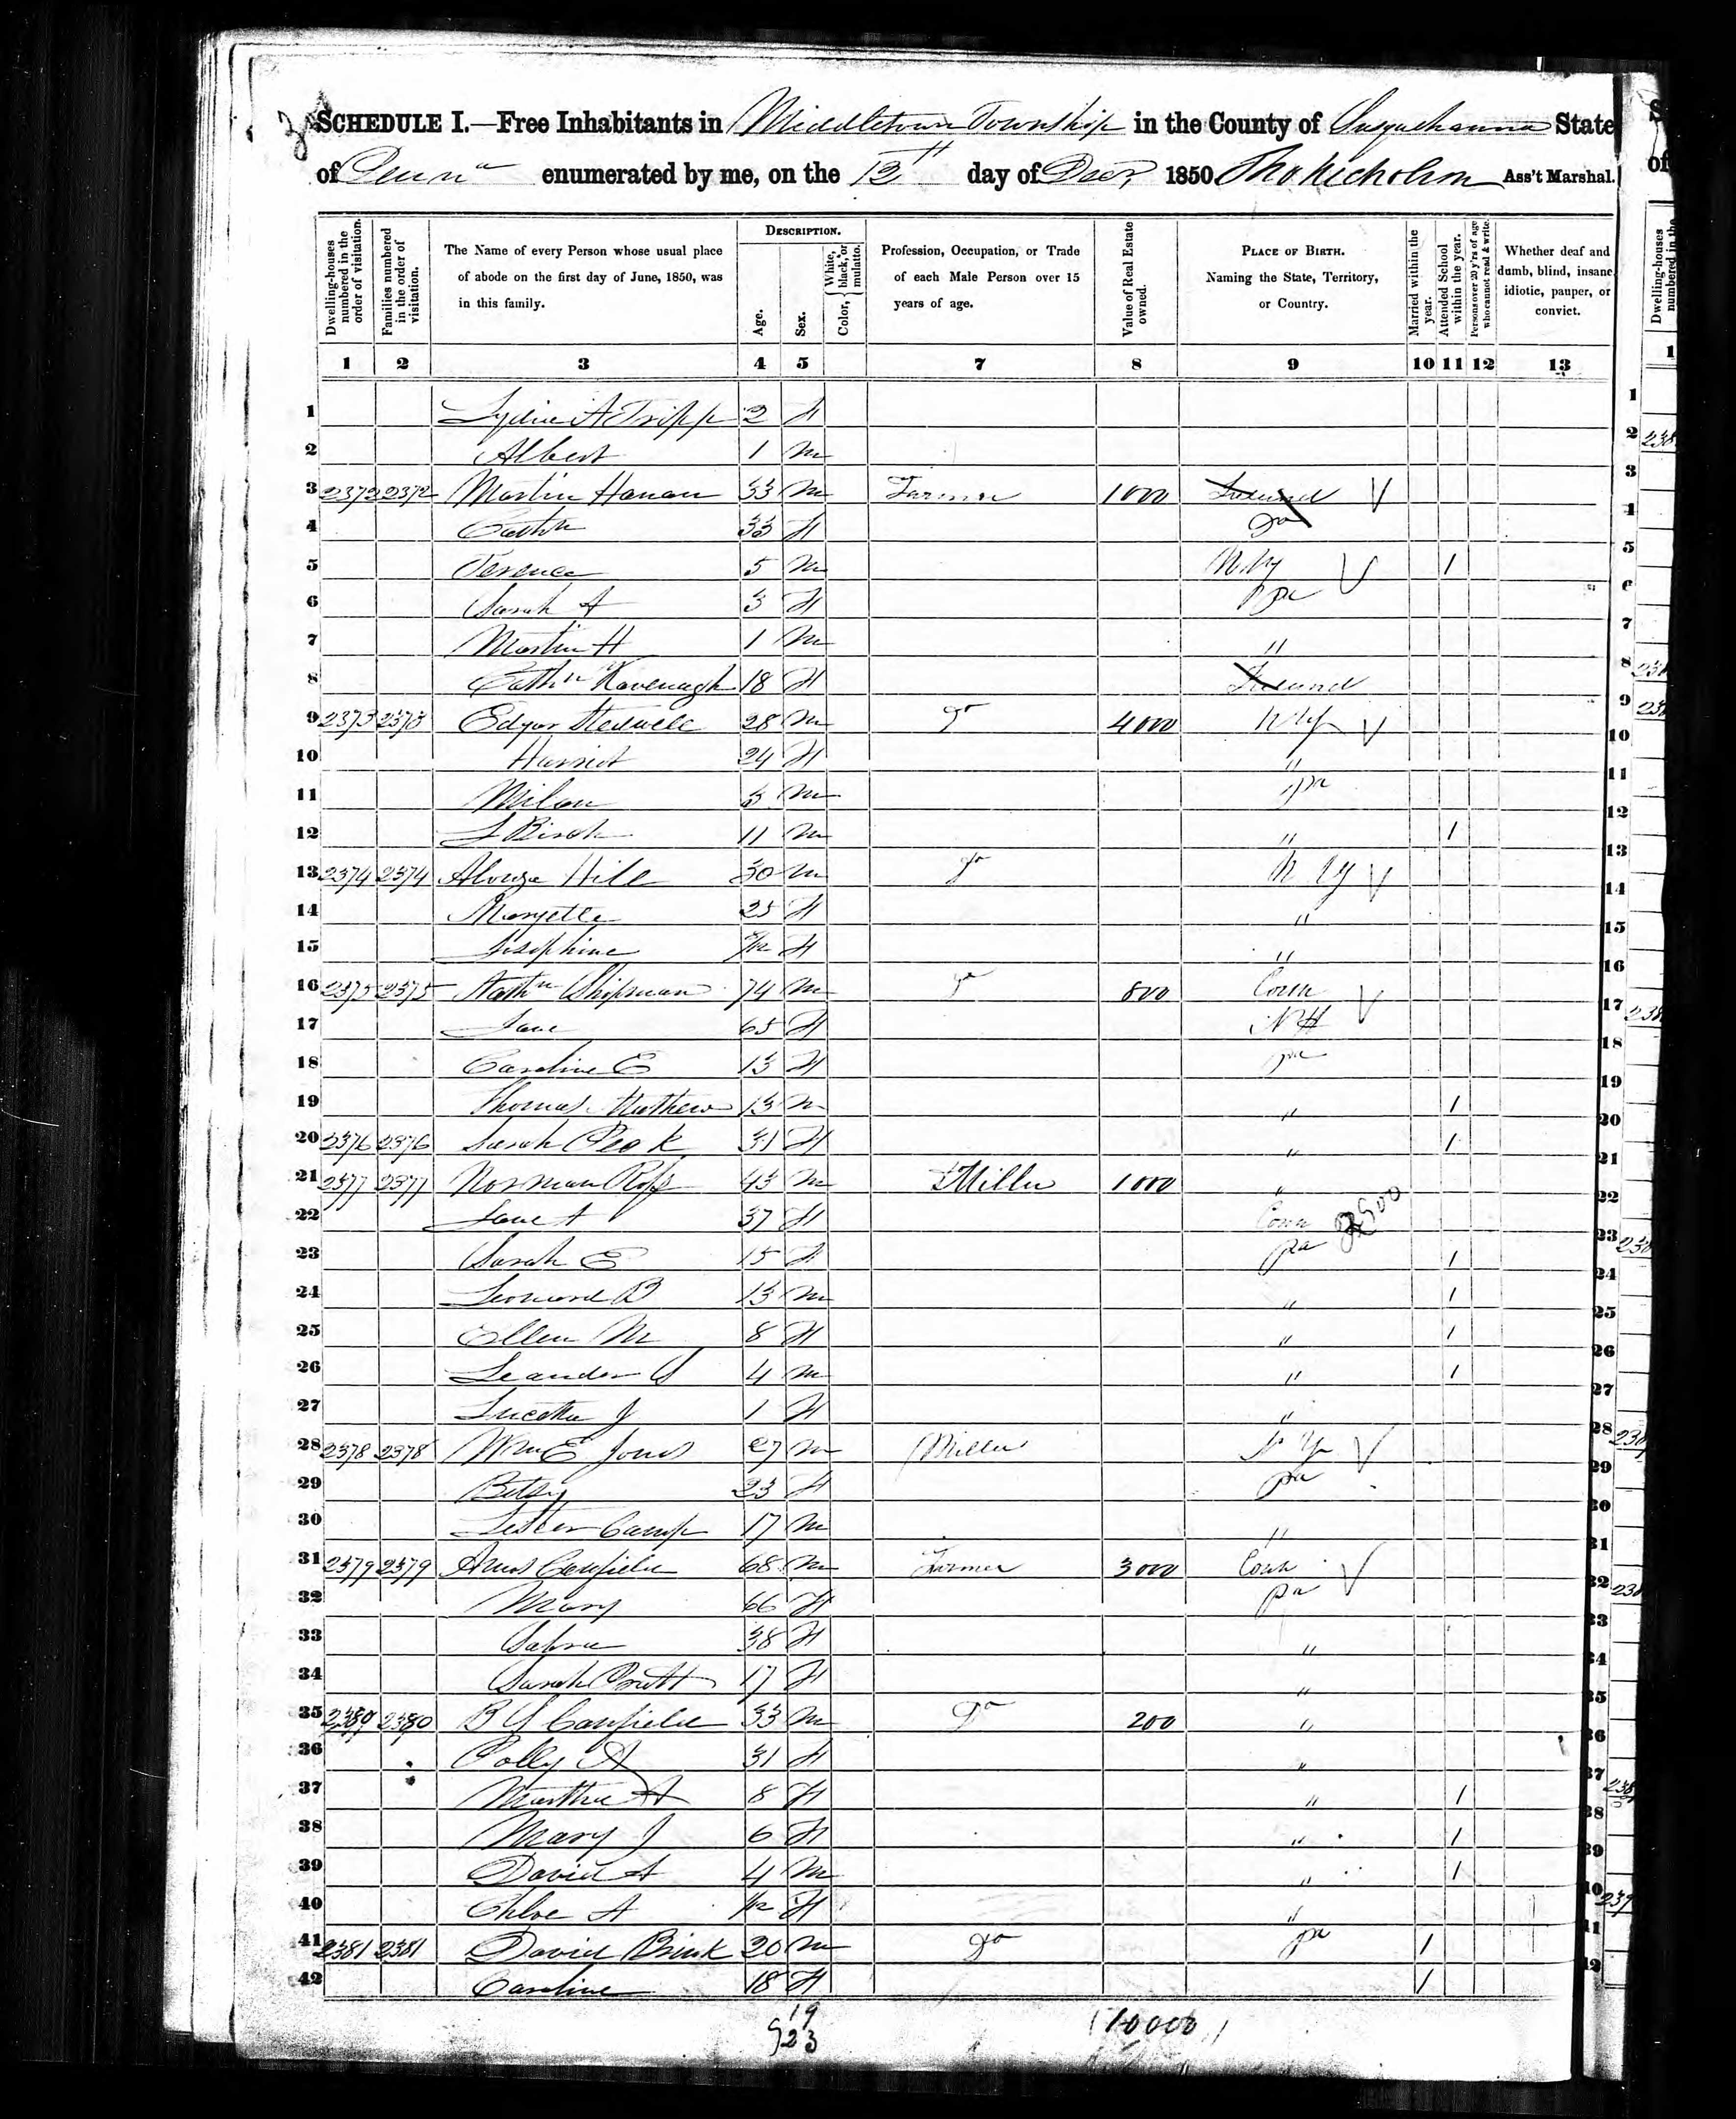 SCHEDULE I.—Free Inhabitants in Middletown Township in the County of Susquehanna State
of Penna enumerated by me, on the 13th day of Decr 1850 Ass't Marshal.
Dwelling-houses numbered in the order of visitation.
Families numbered in the order of visitation.
The Name of every Person whose usual place of abode on the first day of June, 1850, was in this family.
DESCRIPTION.
Age.
Sex.
Color, White, black, or mulatto.
Profession, Occupation, or Trade of each Male Person over 15 years of age.
Value of Real Estate owned.
PLACE OF BIRTH. Naming the State, Territory, or Country.
Married within the year.
Attended School within the year.
Persons over 20 y'rs of age who cannot read & write.
Whether deaf and dumb, blind, insane, idiotic, pauper, or convict.
1 2 3 4 5 6 7 8 9 10 11 12 13
1 Lydia A Tripp 2 F
2 Albert 1 M
3 2372 2372 Martin Hanan 33 M Farmer 1000 Ireland
4 Cathn 33 F Do
5 Terence 5 M N Y 1
6 Sarah A 3 F Pa
7 Martin H 1 M "
8 Cathn Kavenagh 18 F Ireland
9 2373 2373 Edgar 28 M Do 4000 N Y
10 Harriet 24 F "
11 Milan 3 M Pa
12 11 M " 1
13 2374 2374 Alonzo Hill 30 M Do N Y
14 Maryette 25 F "
15 Josephine F "
16 2375 2375 Nathn Shipman 74 M Do 800 Conn
17 Jane 65 F NH
18 Caroline E 13 F Pa
19 Thomas Mathews 13 M " 1
20 2376 2376 Sarah Peck 31 F " 1
21 2377 2377 Norman 43 M Miller 1000 "
22 Jane A 37 F Conn
23 Sarah E 15 F Pa 1
24 Leonard B 13 M " 1
25 Ellen M 8 F " 1
26 Leander 4 M " 1
27 Lucetta J 1 F "
28 2378 2378 Wm E Jones 27 M Miller N Y
29 Betsy 23 F Pa
30 Lester Camp 17 M "
31 2379 2379 Amos Canfield 68 M Farmer 3000 Conn
32 Mary 66 F Pa
33 Sabra 38 F "
34 Sarah Pratt 17 F "
35 2380 2380 B Y Canfield 33 M Do 200 "
36 Polly A 31 F "
37 Martha A 8 F " 1
38 Mary J 6 F " 1
39 David A 4 M " 1
40 Chloe A F "
41 2381 2381 David Brink 20 M Do Pa 1
42 Caroline 18 F 1
19
23
10000